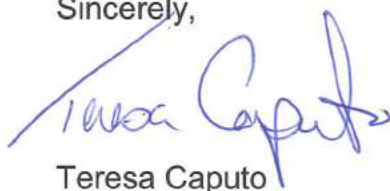 Sincerely,
Teresa Caputo
Teresa Caputo